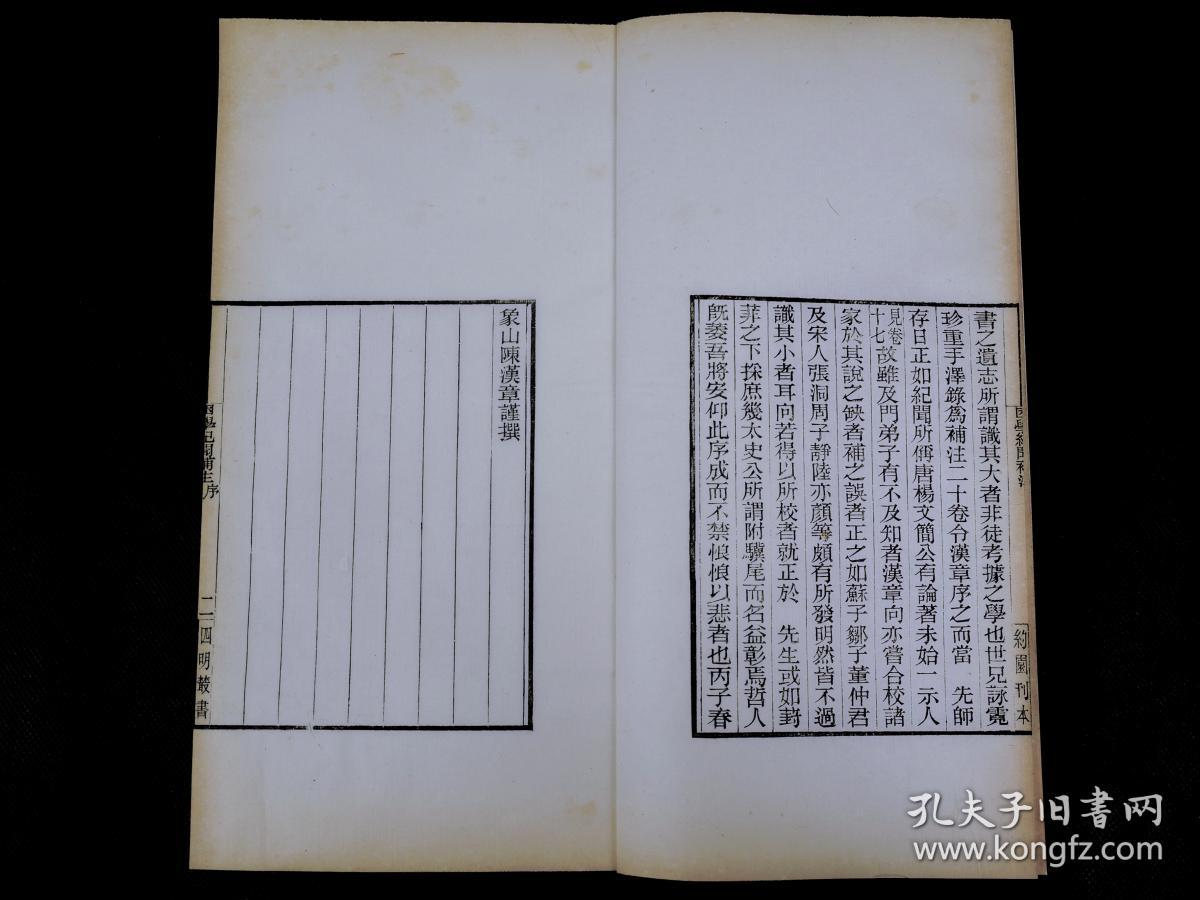 書之遺志所謂識其大者非徒考據之學也世兄詠霓
珍重手澤錄爲補注二十卷令漢章序之而當　先師
存日正如紀聞所偁唐楊文簡公有論著未始一示人
見卷十七故雖及門弟子有不及知者漢章向亦嘗合校諸
家於其說之缺者補之誤者正之如蘇子鄒子董仲君
及宋人張洞周子靜陸亦顏等頗有所發明然皆不過
識其小者耳向若得以所校者就正於　先生或如葑
菲之下採庶幾太史公所謂附驥尾而名益彰焉哲人
旣萎吾將安仰此序成而不禁悢悢以悲者也丙子春
困學紀聞補注
約園刊本
象山陳漢章謹撰
困學紀聞補注序
二
四明叢書
孔夫子旧书网
www.kongfz.com